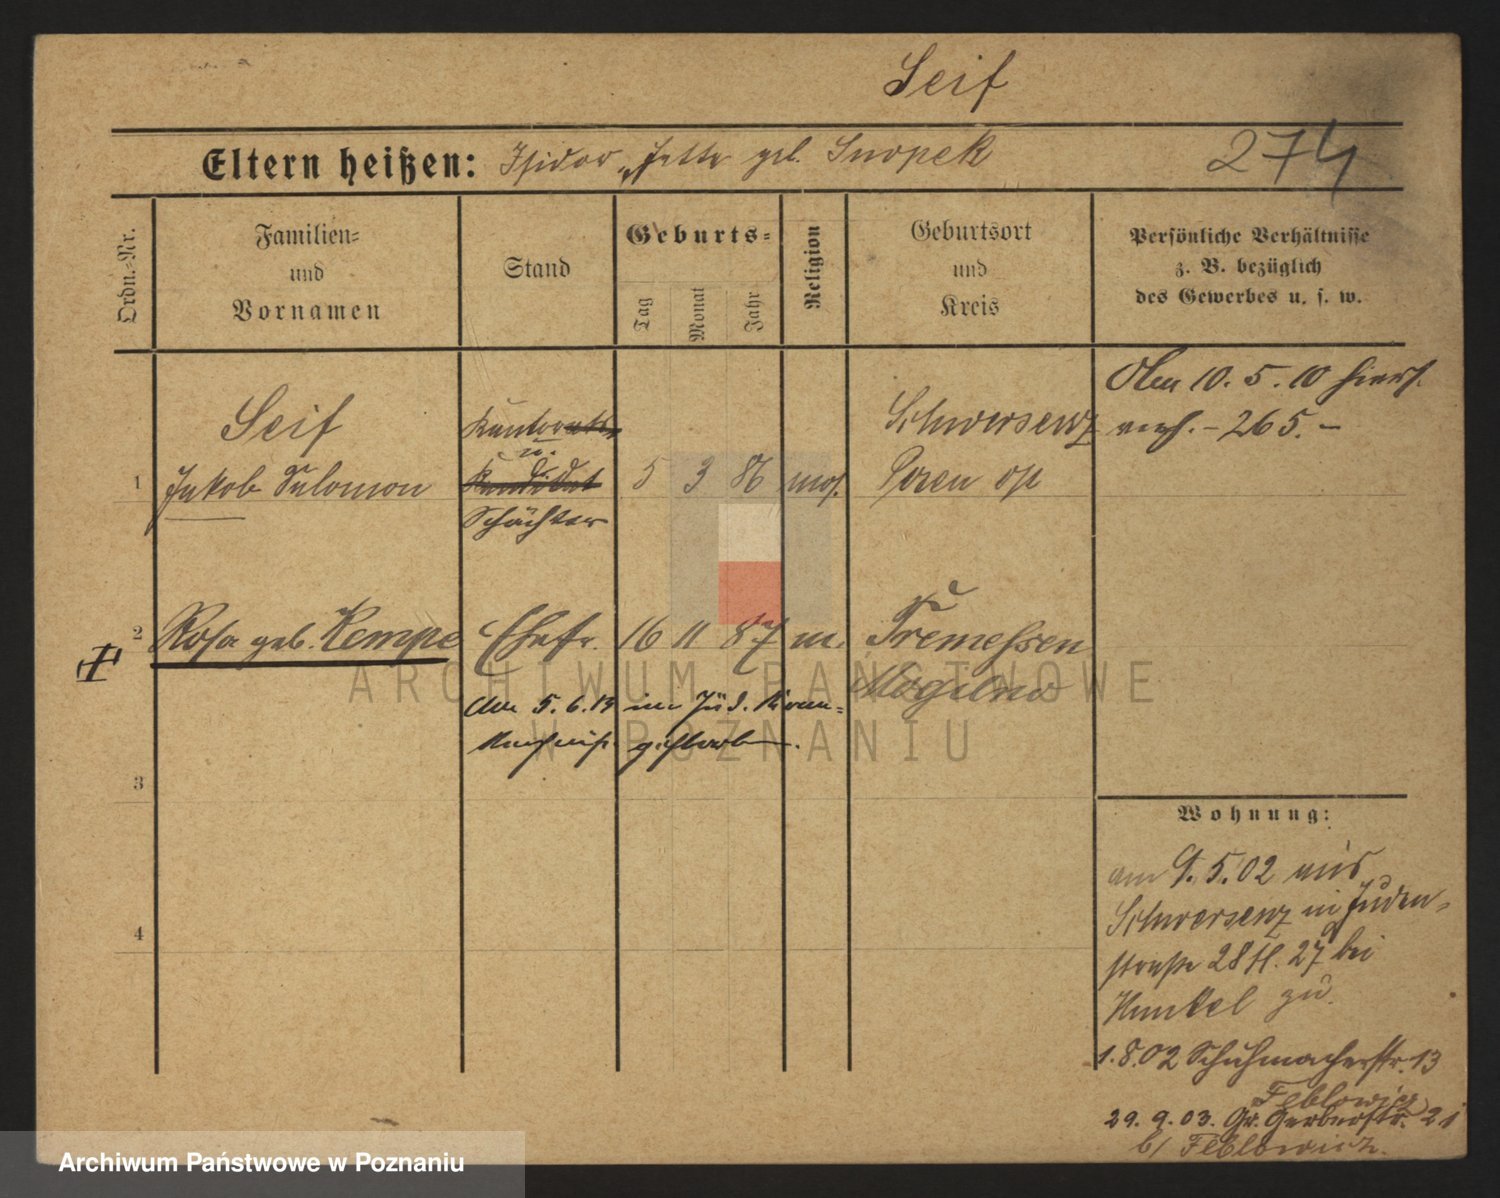 Seif
Eltern heißen: Isidor u. Jette geb. Snopek
274
Ordn.-Nr.
Familien-
und
Vornamen
Stand
Geburts-
Tag
Monat
Jahr
Religion
Geburtsort
und
Kreis
Persönliche Verhältnisse
z. B. bezüglich
des Gewerbes u. s. w.
1
Seif
Jakob Salomon
Kantorats
u.
Kandidat
Schächter
5 3 86 mos.
Schwersenz
Posen op
Am 10. 5. 10 hiers.
verh. - 265. -
2
Rosa geb. Kempe
Ehefr. 16 11 87 m.
Tremessen
Mogilno
Am 5. 6. 13 im Jüd. Kran-
kenhause gestorben.
3
4
Wohnung:
am 9. 5. 02 aus
Schwersenz in Juden-
straße 28 II. 27 bei
Kunkel zu.
1. 8. 02 Schuhmacherstr. 13
Feblowicz
29. 9. 03. Gr. Gerberstr. 21
b/ Feblowicz.
ARCHIWUM PAŃSTWOWE
W POZNANIU
Archiwum Państwowe w Poznaniu